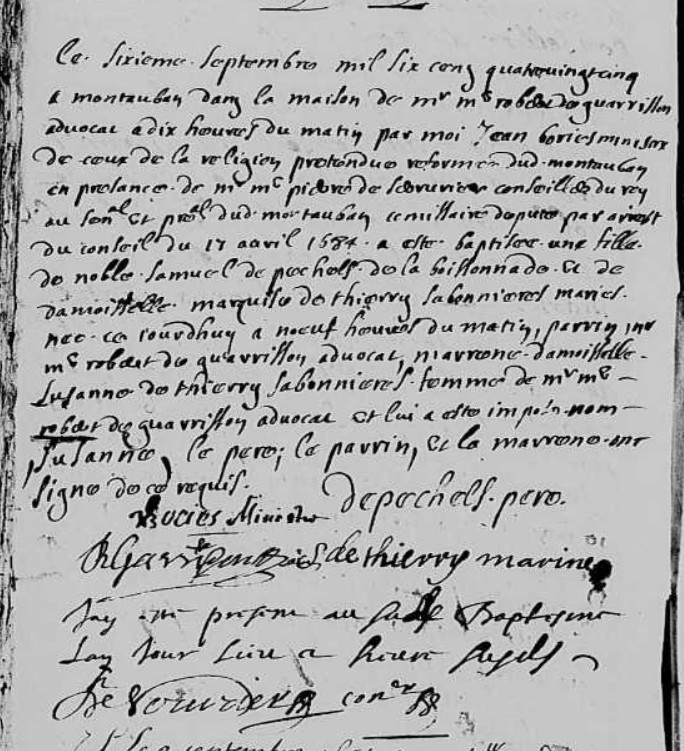 le sixieme septembre mil six cens quatrevingt cinq
a montauban dans la maison de mr me robert de guarrisson
advocat a dix heures du matin par moi Jean bories ministre
de ceux de la religion pretendue reformee dud. montauban
en presance de mr me pierre de seruvier conseiller du roy
au senal et preal dud. montauban comissaire depute par arrest
du conseil du 17 avril 1684 a este baptisee une fille
de noble samuel de pechels de la boissonnade et de
damoiselle marquise de thierry sabonnieres maries
nee ce jourdhuy a noeuf heures du matin, parrin, mr
me robert de guarrisson advocat, marrene damoiselle
Susanne de thierry sabonnieres femme de mr me
robert de guarrisson advocat et lui a este impose nom
Susanne, le pere, le parrin, et la marrene ont
signe de ce requis.
Bories Ministre depechels. pere.
de thierry marine
Jay este present au susd Baptesme
Lan Jour Lieu et heure susds
De conar
septembre